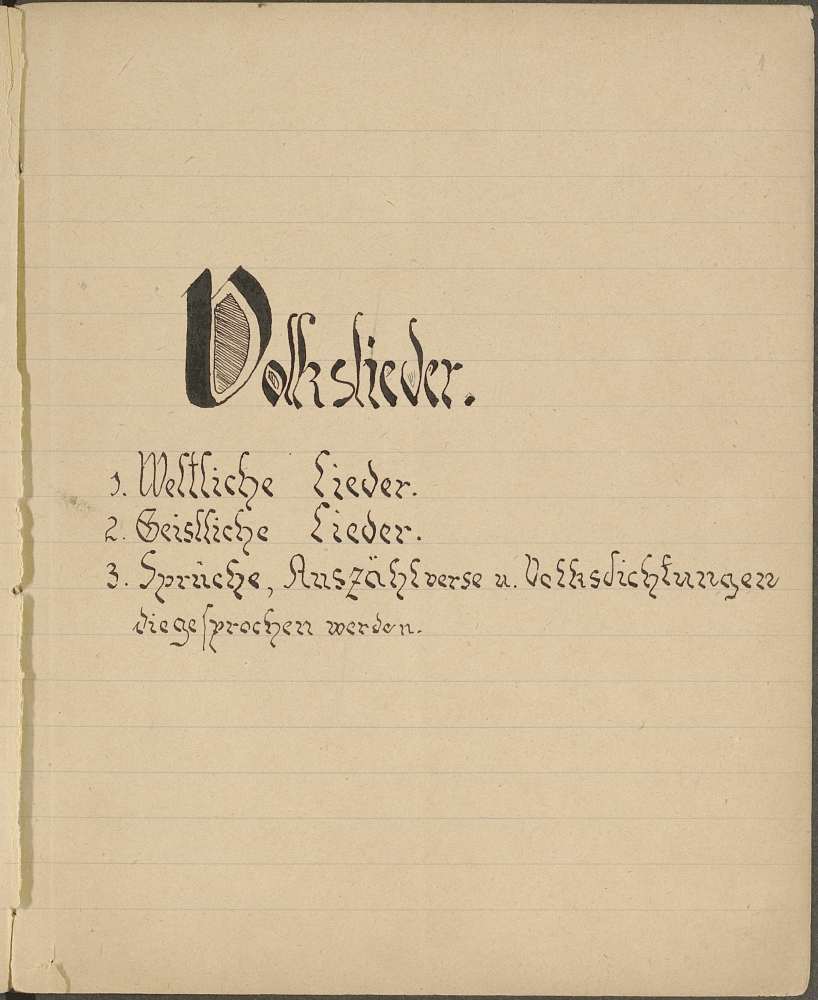 1
Volkslieder.
1. Weltliche Lieder.
2. Geistliche Lieder.
3. Sprüche, Auszählverse u. Volksdichtungen
die gesprochen werden.